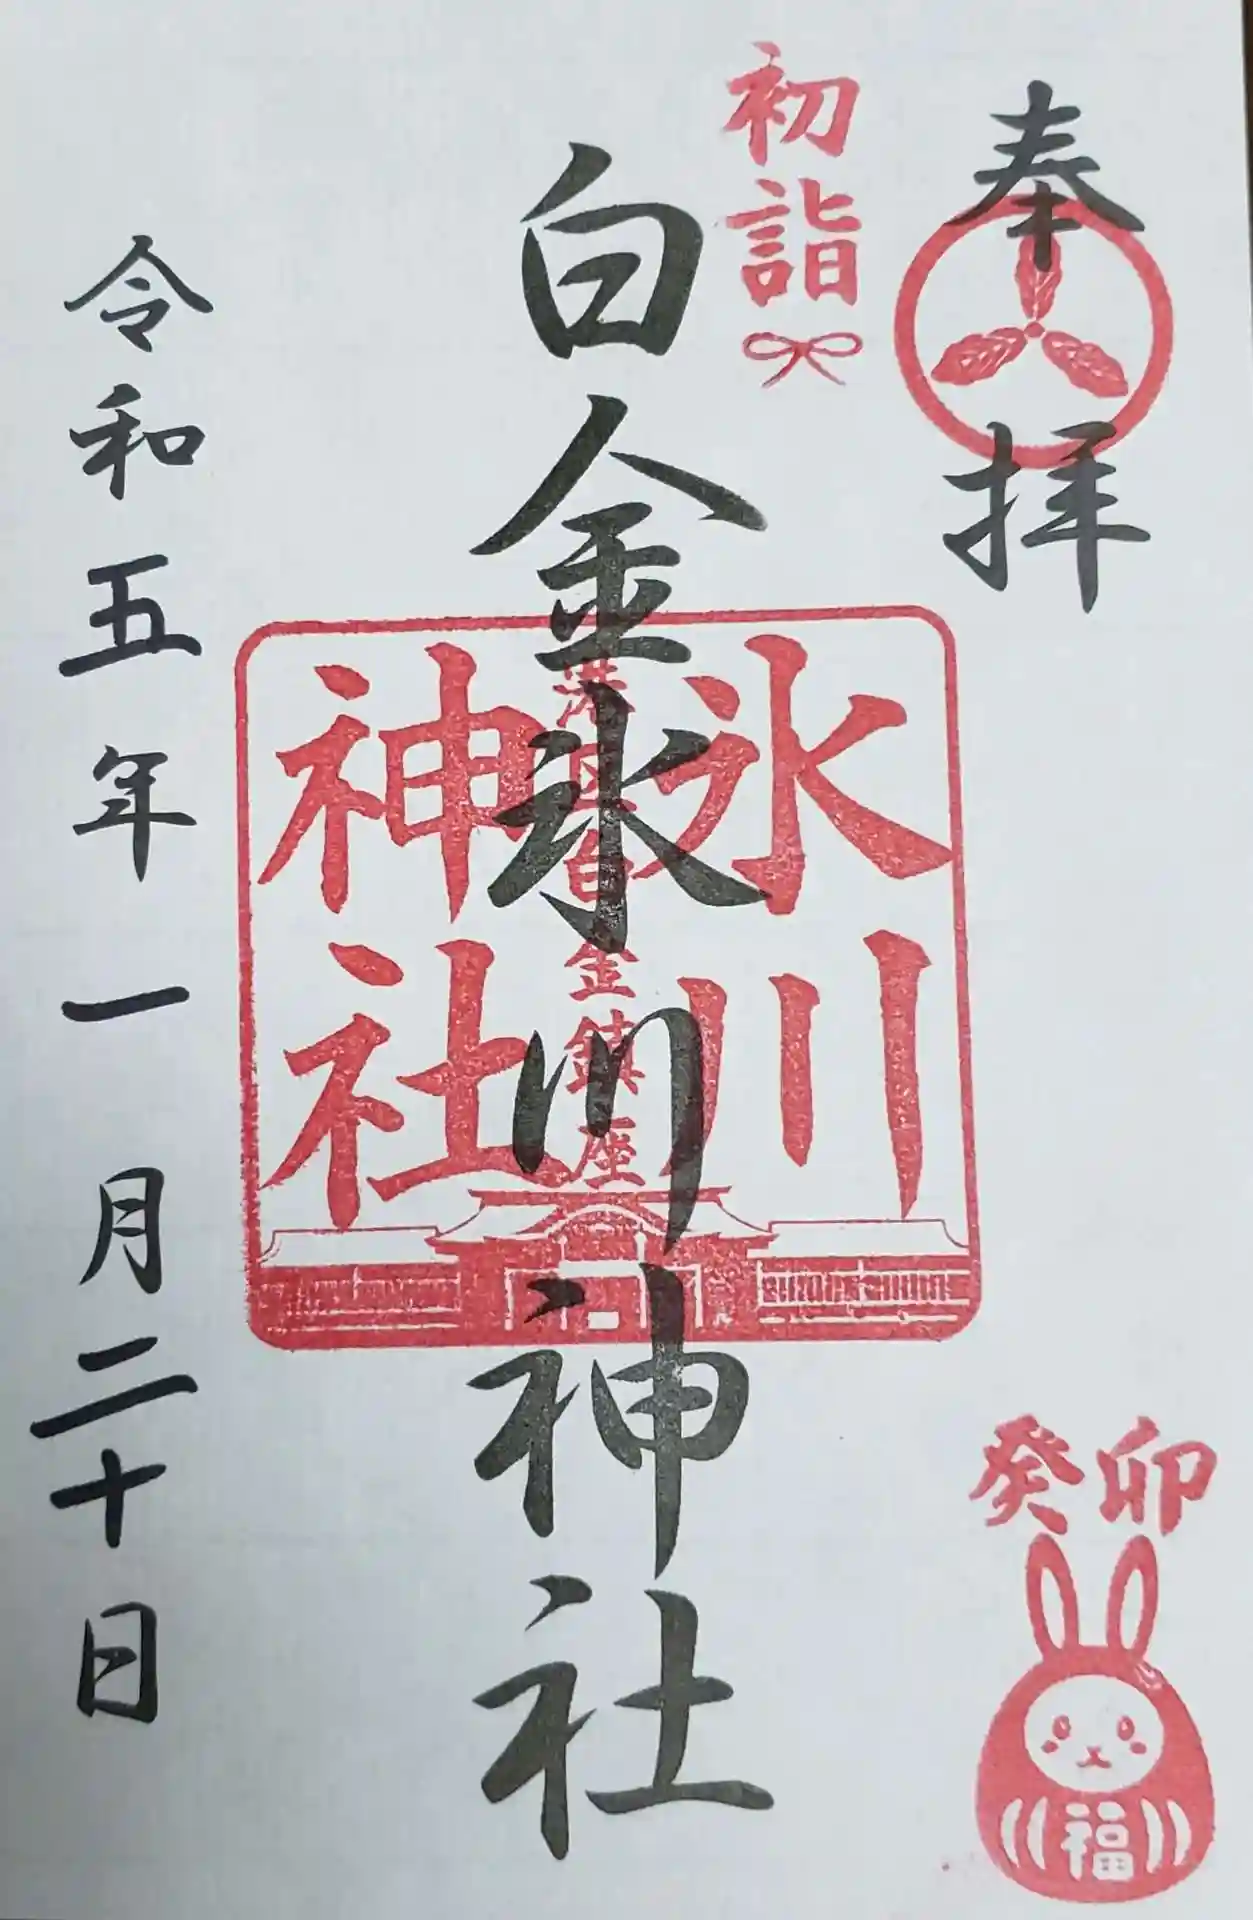 奉拝
初詣
白金氷川神社
氷川
神社
港区白金鎮座
令和五年一月二十日
癸卯
福